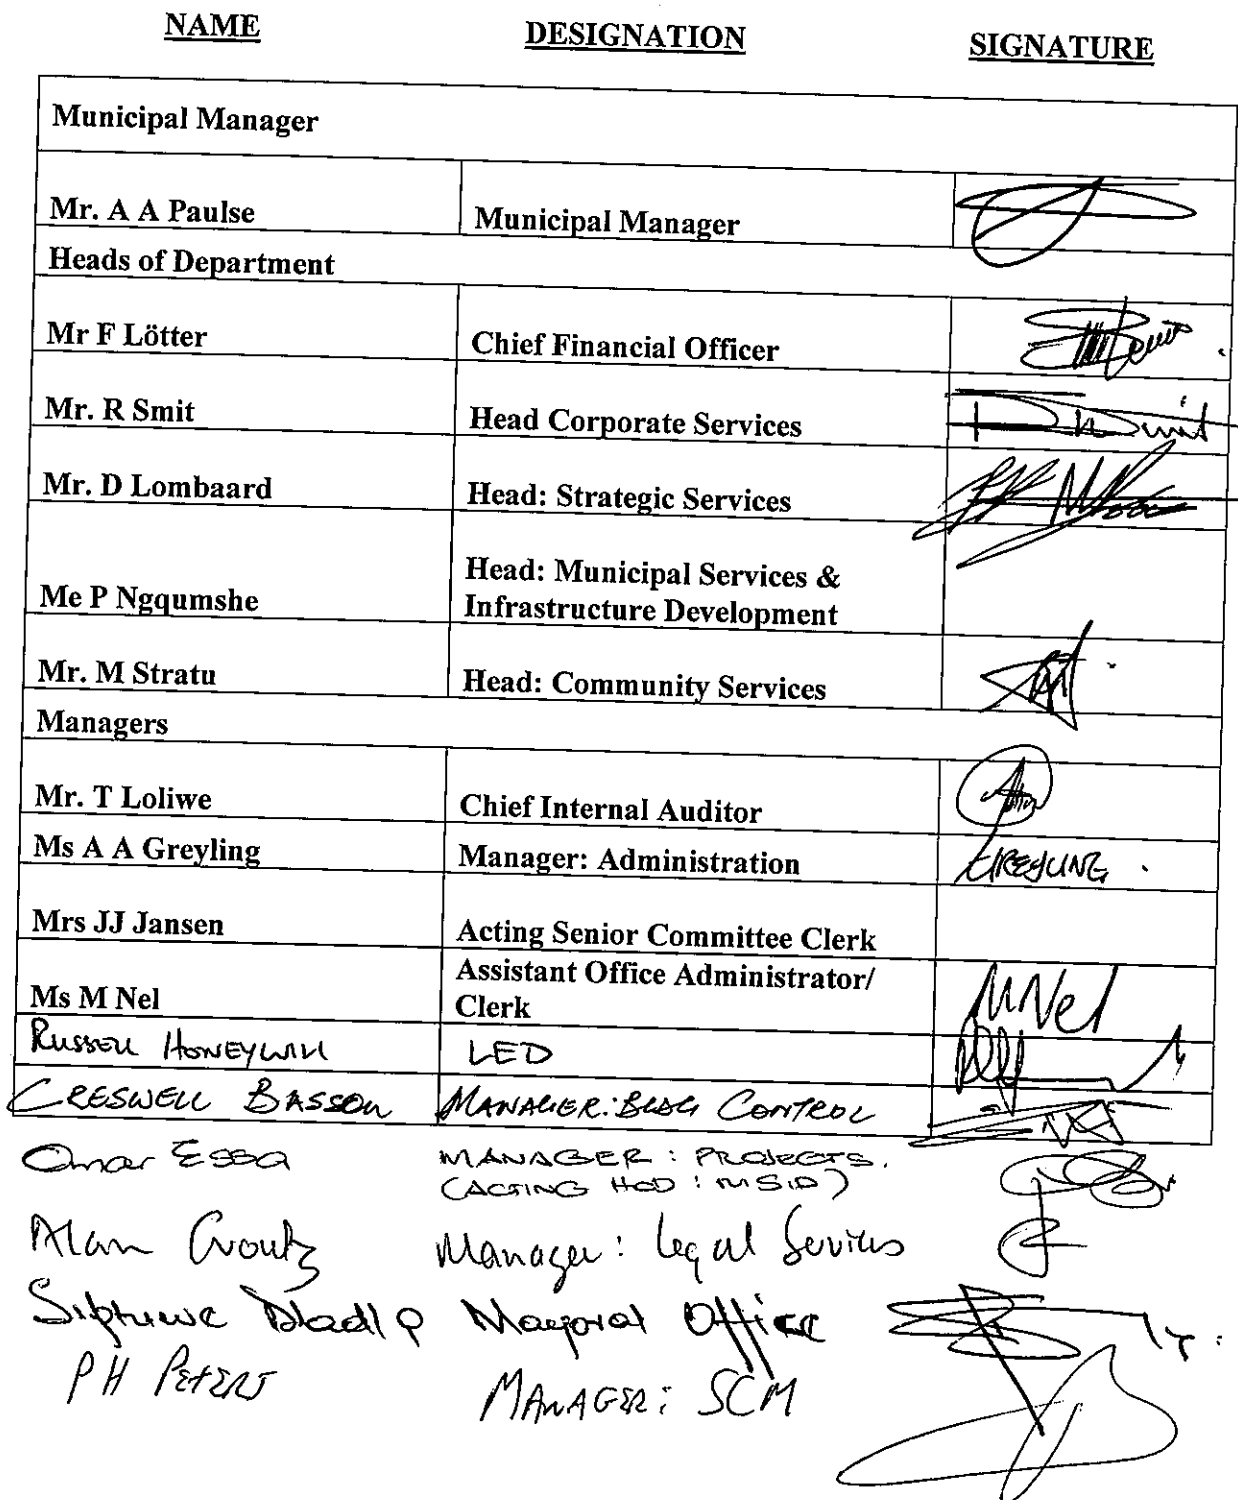 NAME DESIGNATION SIGNATURE
Municipal Manager
Mr. A A Paulse Municipal Manager
Heads of Department
Mr F Lötter Chief Financial Officer
Mr. R Smit Head Corporate Services
Mr. D Lombaard Head: Strategic Services
Me P Ngqumshe Head: Municipal Services &
Infrastructure Development
Mr. M Stratu Head: Community Services
Managers
Mr. T Loliwe Chief Internal Auditor
Ms A A Greyling Manager: Administration GREYLING
Mrs JJ Jansen Acting Senior Committee Clerk
Ms M Nel Assistant Office Administrator/
Clerk MNel
RUSSELL HONEYWILL LED
CRESWELL BASSON MANAGER: BLDG CONTROL
Omar Essa MANAGER: PROJECTS.
(ACTING HOD: MSID)
Alan Croutz Manager: Legal Services
Mayoral Office
PH PETERS MANAGER: SCM